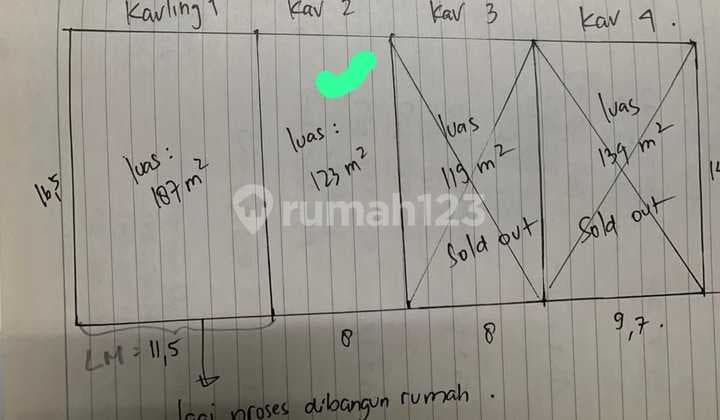 Kavling 1 Kav 2 Kav 3 Kav 4 .
luas :
187 m²
luas :
123 m²
luas
119 m²
Sold out
luas
139 m²
Sold out
16,5
rumah123
LM = 11,5
8
8
9,7 .
lagi proses dibangun rumah .